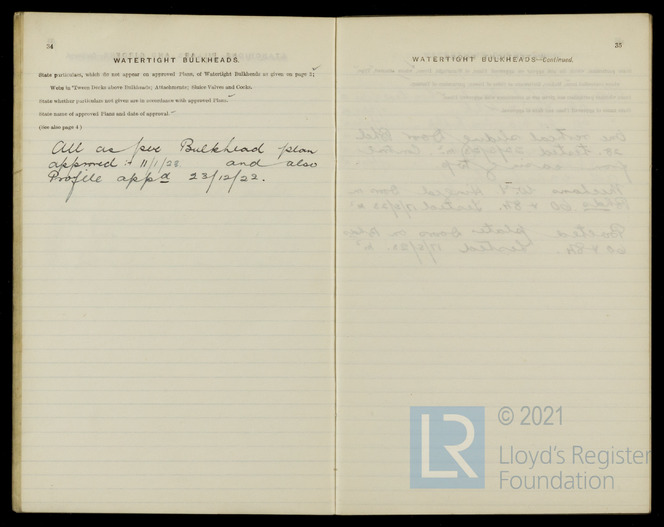 34
WATERTIGHT BULKHEADS.
State particulars, which do not appear on approved Plans, of Watertight Bulkheads as given on page 3;
Webs in 'Tween Decks above Bulkheads; Attachments; Sluice Valves and Cocks.
State whether particulars not given are in accordance with approved Plans.
State name of approved Plans and date of approval.
(See also page 4)
All as per Bulkhead plan
approved :- 11/1/23. and also
Profile appd 23/12/22.
35
WATERTIGHT BULKHEADS—Continued.
LR
© 2021
Lloyd's Register
Foundation